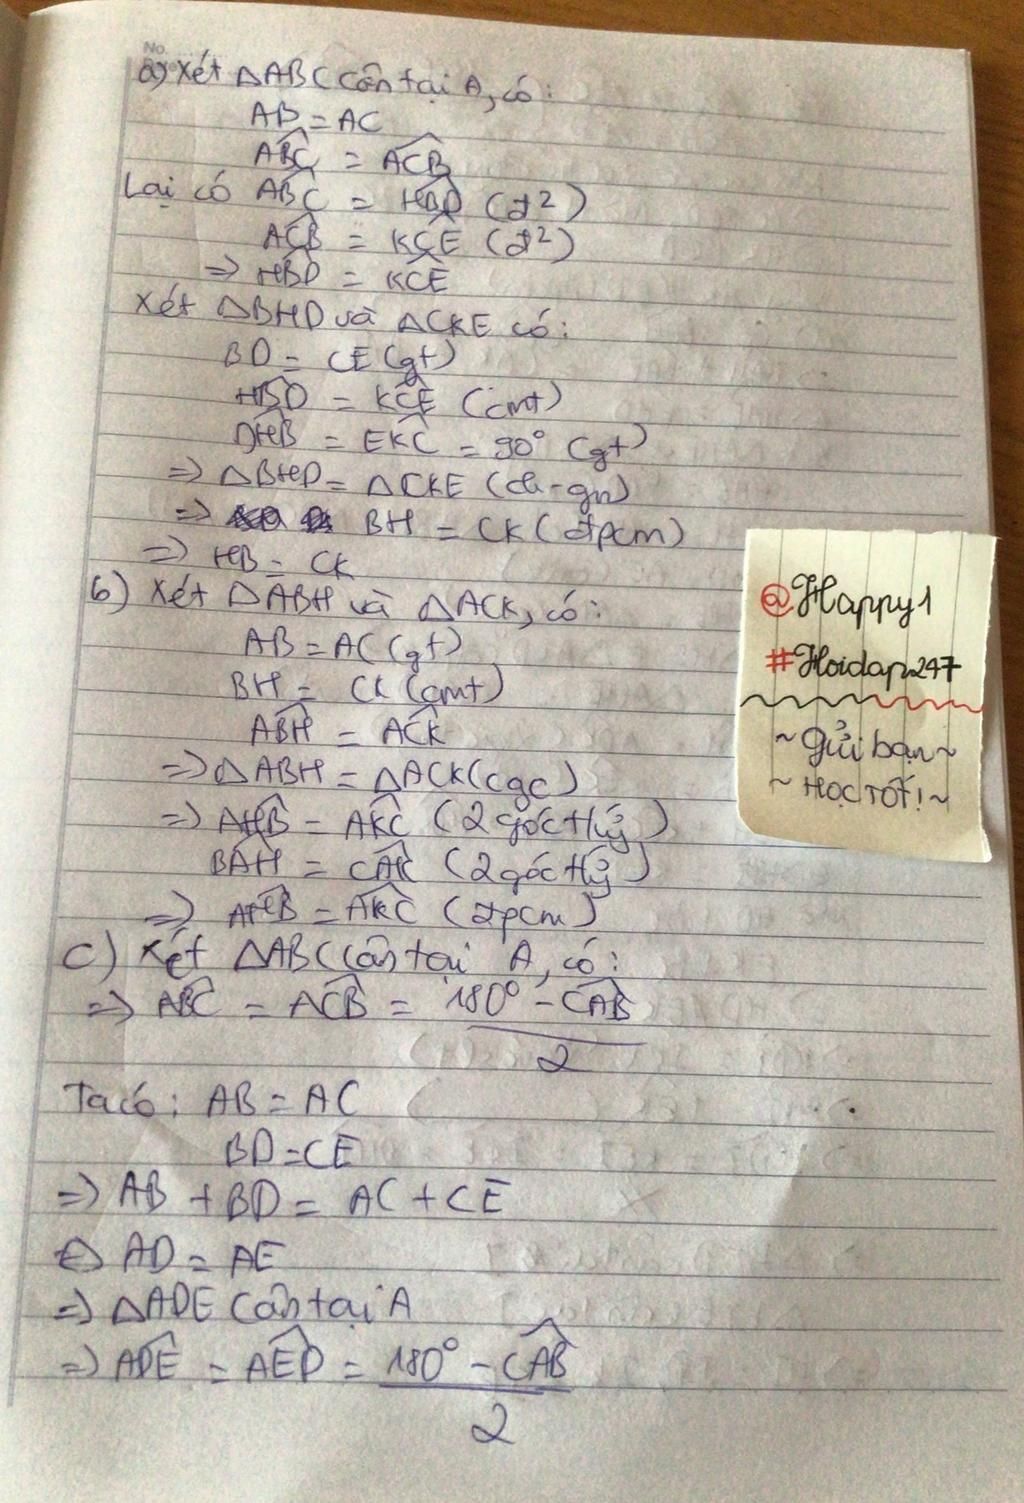 No.
a) Xét ΔABC cân tại A, có:
AB = AC
ABC^ = ACB^
Lại có ABC^ = HBD^ (đ²)
ACB^ = KCE^ (đ²)
=> HBD^ = KCE^
Xét ΔBHD và ΔCKE có:
BD = CE (gt)
HBD^ = KCE^ (cmt)
DHB^ = EKC^ = 90° (gt)
=> ΔBHD = ΔCKE (ch-gn)
=> BH = CK (đpcm)
=> HB = CK
b) Xét ΔABH và ΔACK, có:
AB = AC (gt)
BH = CK (cmt)
ABH^ = ACK^
=> ΔABH = ΔACK (cgc)
=> AHB^ = AKC^ (2 góc tứ)
BAH^ = CAK^ (2 góc tứ)
=> AHB^ = AKC^ (đpcm)
c) Xét ΔABC cân tại A, có:
=> ABC^ = ACB^ = 180° - CAB^
2
Ta có: AB = AC
BD = CE
=> AB + BD = AC + CE
<=> AD = AE
=> ΔADE cân tại A
=> ADE^ = AED^ = 180° - CAB^
2
@Happy1
#Hoidap247
~ Gửi bạn ~
~ HỌC TỐT! ~